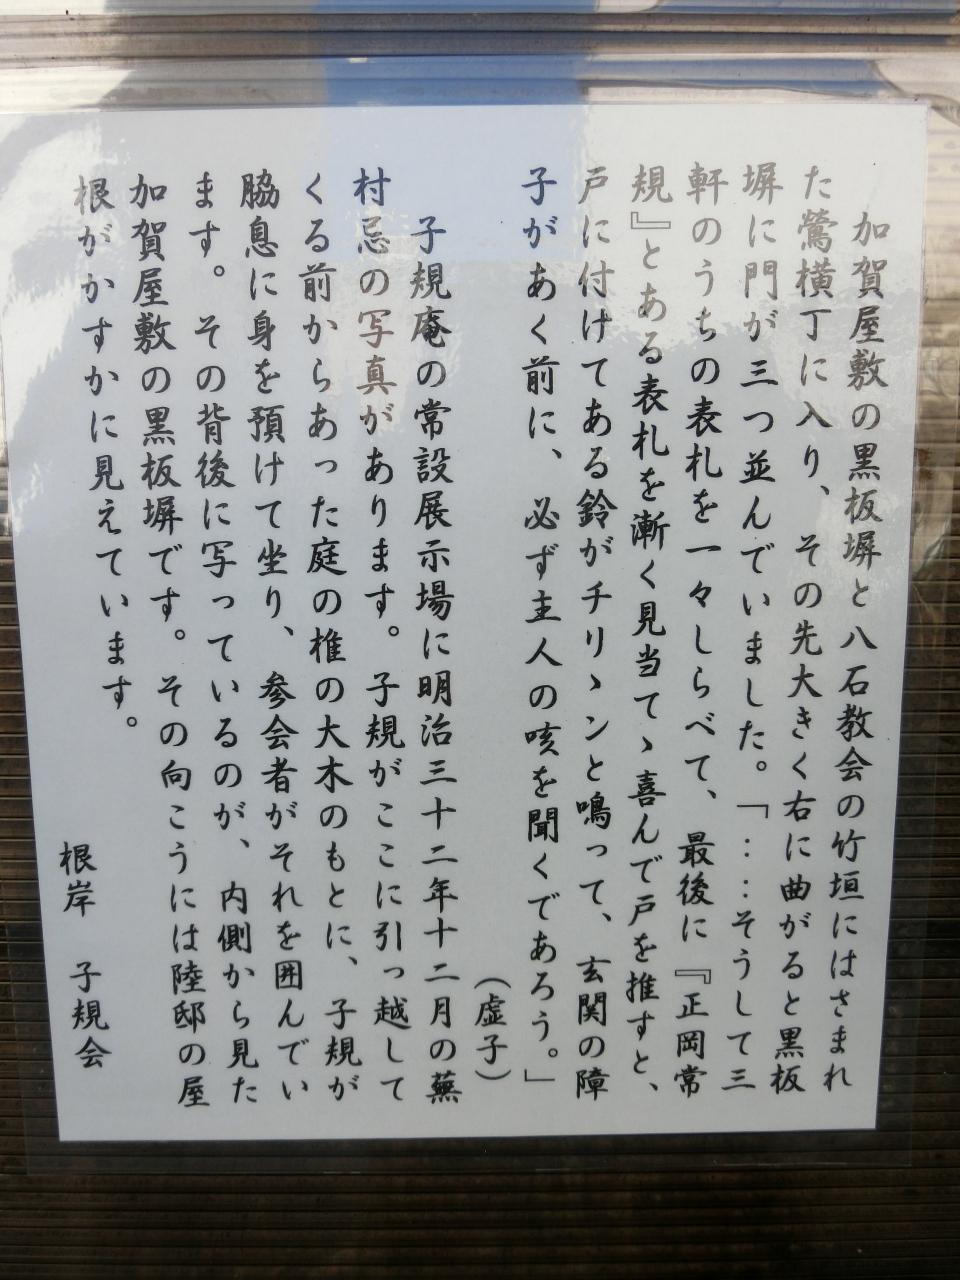 加賀屋敷の黒板塀と八石教会の竹垣にはさまれ
た鶯横丁に入り、その先大きく右に曲がると黒板
塀に門が三つ並んでいました。「‥‥そうして三
軒のうちの表札を一々しらべて、最後に『正岡常
規』とある表札を漸く見当てゝ喜んで戸を推すと、
戸に付けてある鈴がチリゝンと鳴って、玄関の障
子があく前に、必ず主人の咳を聞くであろう。」
（虚子）
子規庵の常設展示場に明治三十二年十二月の蕪
村忌の写真があります。子規がここに引っ越して
くる前からあった庭の椎の大木のもとに、子規が
脇息に身を預けて坐り、参会者がそれを囲んでい
ます。その背後に写っているのが、内側から見た
加賀屋敷の黒板塀です。その向こうには陸邸の屋
根がかすかに見えています。
根岸 子規会